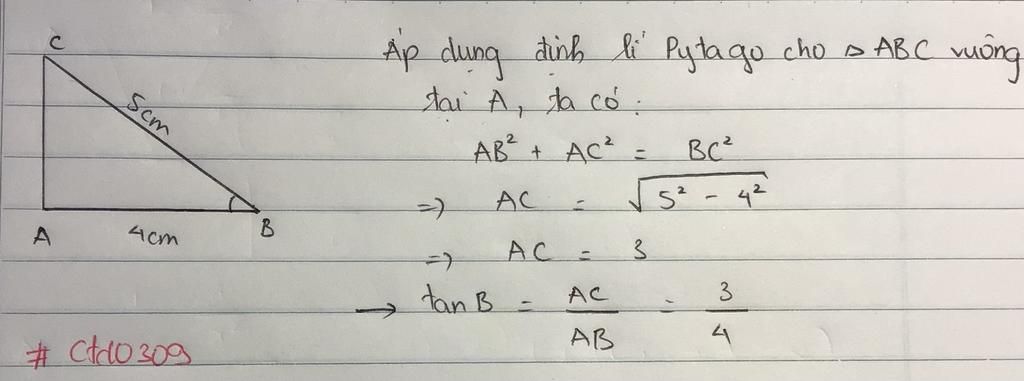 C
5cm
A
4cm
B
Áp dụng định lí Pytago cho △ ABC vuông
tại A, ta có:
AB² + AC² = BC²
=> AC = √5² - 4²
=> AC = 3
→ tan B = AC/AB = 3/4
# Ctd0309